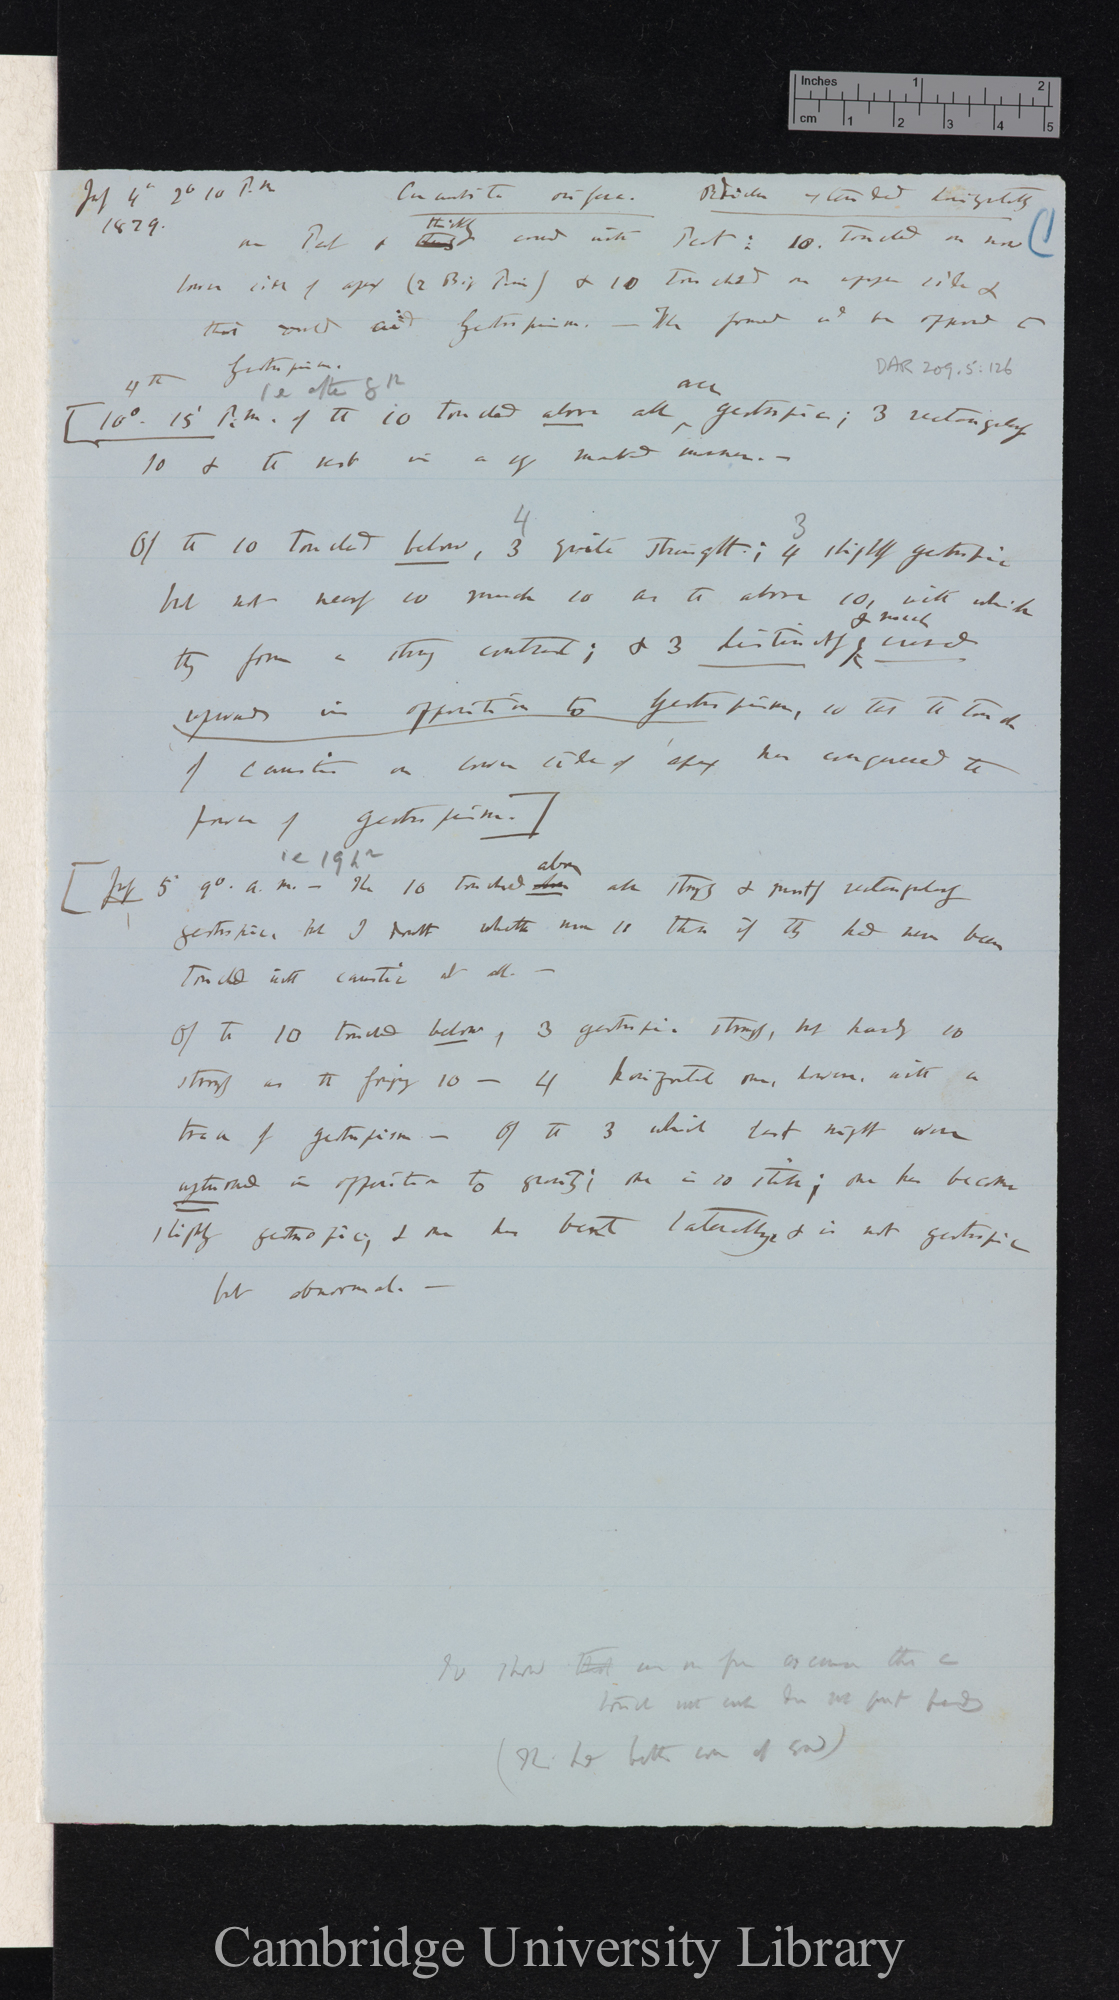 Inches 1 2
cm 1 2 3 4 5
July 4th 2° 10' P.m
1879.
Radicles extended horizontally
on Peat & thickly covered with Peat: 10. touched on now
lower side of apex (2 Big Pins) & 10 touched on upper side &
this would aid Geotropism. — The former wd be opposed to
Geotropism.
DAR 209.5:126
4th
ie after 8 h
[10°. 15' P.m. of the 10 touched above all are geotropic; 3 rectangularly
so & the rest in a marked manner. —
4 3
Of the 10 touched below, 3 quite straight; 4 slightly geotropic
but not nearly so much so as the above 10, with which
they form a strong contrast; & 3 distinctly & much curved
upwards in opposition to Geotropism, so that the touch
of caustic on lower side of apex has conquered the
power of geotropism.]
ie 19 hr
[July 5' 9°. a.m. — The 10 touched above all strongly & mostly rectangularly
geotropic, but I doubt whether more so than if they had never been
touched with caustic at all. —
Of the 10 touched below, 3 geotropic strongly, but hardly so
strongly as the foregoing 10 — 4 horizontal one, however, with a
trace of geotropism — Of the 3 which last night were
upturned in opposition to gravity; one is so still; one has become
slightly geotropic, & one has bent laterally & is not geotropic
but abnormal. —
To show
touch
Cambridge University Library